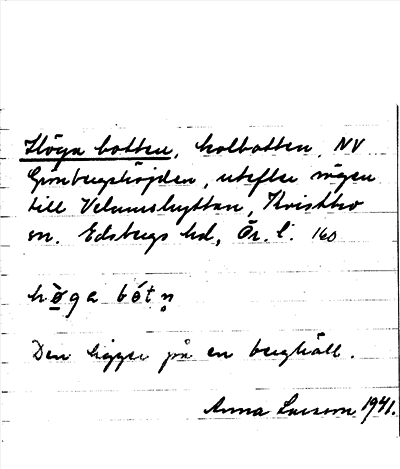 Höga botten, kolbotten, NV
Grönbergshöjden, utefter vägen
till Velamshyttan, Kvistbro
sn. Edsbergs hd, Ör. l. 160
hø̀ga bót n̥
Den ligger på en berghäll.
Anna Larsson 1941.